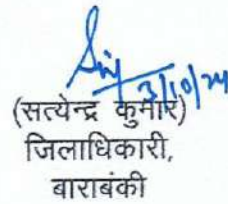 3/10/24
(सत्येन्द्र कुमार)
जिलाधिकारी,
बाराबंकी